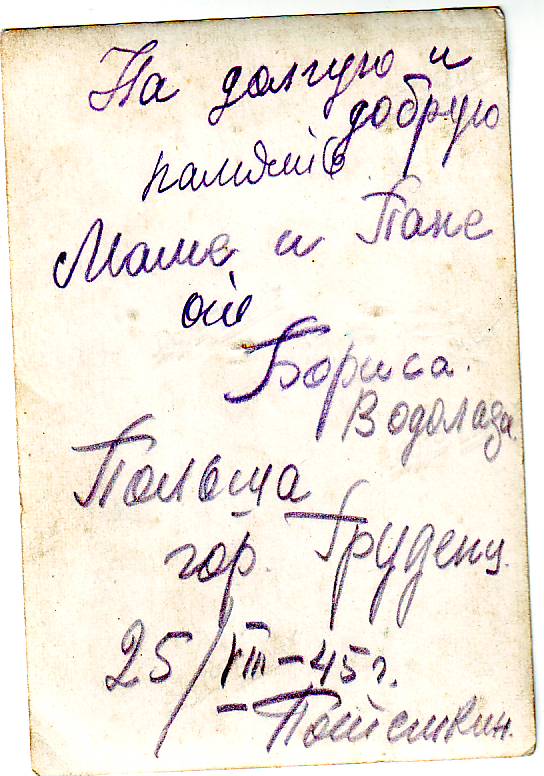 На долгую и
добрую
память
Маме и Пане
от
Бориса.
Водолаза.
Польша
гор. Груденц.
25/VIII-45 г.
Потемкин.